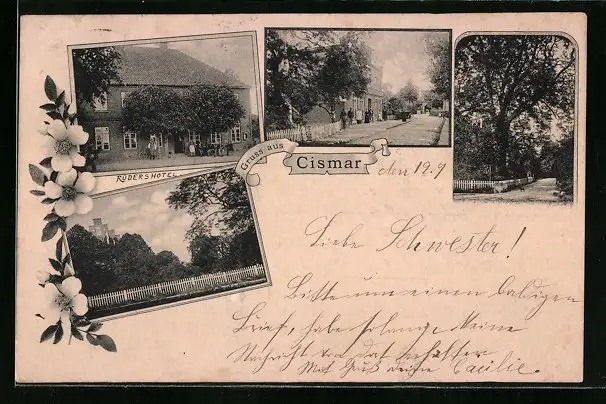 RÜDERSHOTEL
Gruss aus
Cismar
den 19.9
Liebe Schwester!
Bitte um einen baldigen
Brief, habe so lange Keine
Nachricht von dat erhalten
Mit Gruß deine Cacilie.